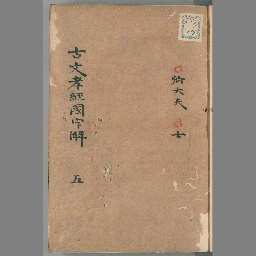 卿大夫 士
古文孝經國字解 五